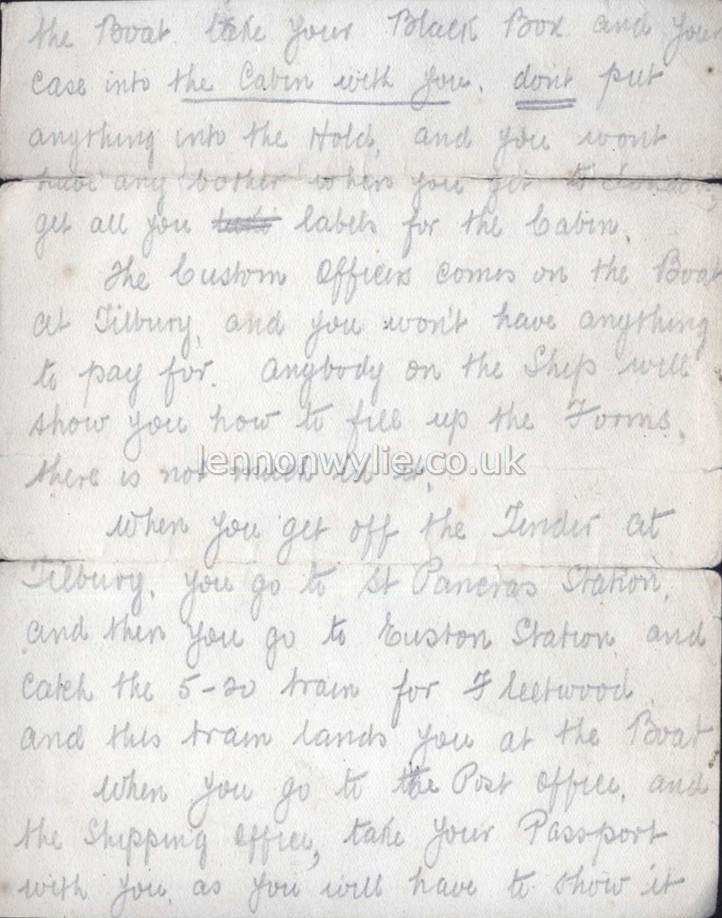 the Boat. take your Black Box and your
case into the Cabin with you. dont put
anything into the Hold, and you wont
have any bother when you get to London,
get all you labels for the Cabin.
The Custom Officers comes on the Boat
at Tilbury, and you won't have anything
to pay for. anybody on the Ship will
show you how to fill up the Forms,
there is not much in it.
lennonwylie.co.uk
When you get off the Tender at
Tilbury, you go to St Pancras Station,
and then you go to Euston Station and
catch the 5-20 train for Fleetwood,
and this train lands you at the Boat
When you go to the Post Office, and
the Shipping Office, take your Passport
with you, as you will have to show it